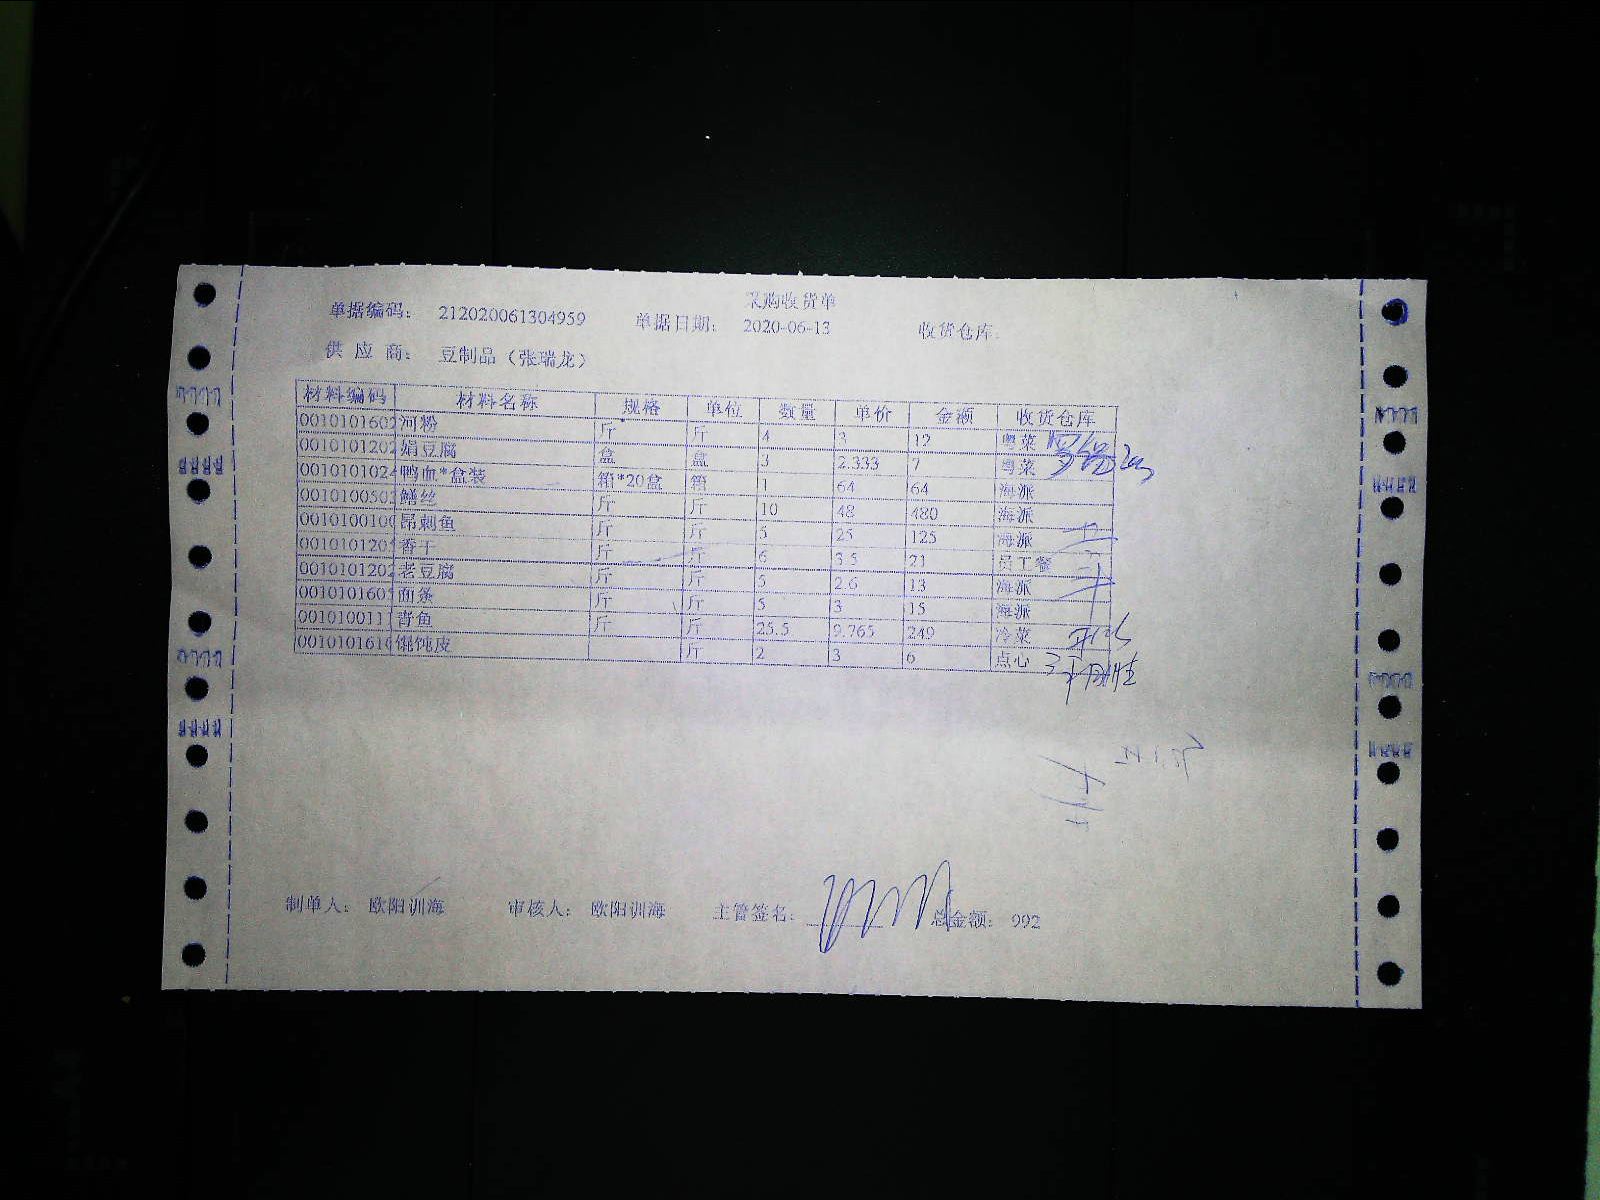 采购收货单
单据编码： 212020061304959 单据日期： 2020-06-13 收货仓库：
供 应 商： 豆制品（张瑞龙）
材料编码 材料名称 规格 单位 数量 单价 金额 收货仓库
0010101602 河粉 斤 斤 4 3 12 粤菜
0010101202 娟豆腐 盒 盒 3 2.333 7 粤菜
0010101024 鸭血*盒装 箱*20盒 箱 1 64 64 海派
001010050 鳝丝 斤 斤 10 48 480 海派
001010010 昂刺鱼 斤 斤 5 25 125 海派
001010120 香干 斤 斤 6 3.5 21 员工餐
0010101202 老豆腐 斤 斤 5 2.6 13 海派
001010160 面条 斤 斤 5 3 15 海派
001010011 青鱼 斤 斤 25.5 9.765 249 冷菜
001010161 馄饨皮 斤 2 3 6 点心
制单人： 欧阳训海 审核人： 欧阳训海 主管签名： 总金额： 992